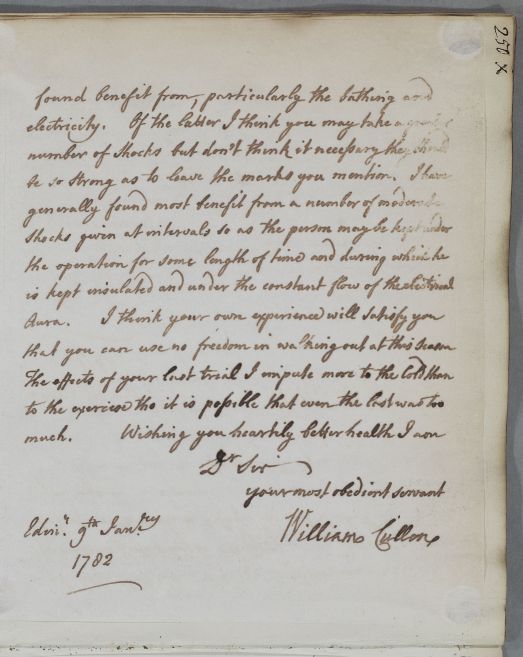 250 x
found benefit from, particularly the bathing and
electricity. Of the latter I think you may take a greater
number of Shocks but don't think it necessary they should
be so strong as to leave the marks you mention. I have
generally found most benefit from a number of moderate
shocks given at intervals so as the person may be kept under
the operation for some length of time and during which he
is kept insulated and under the constant flow of the electrical
Aura. I think your own experience will satisfy you
that you can use no freedom in walking out at this season
The effects of your last trial I impute more to the Cold than
to the exercise tho it is possible that even the last was too
much. Wishing you heartily better health I am
Dr Sir
your most obedient servant
William Cullen
Edinr. 9th Janry
1782